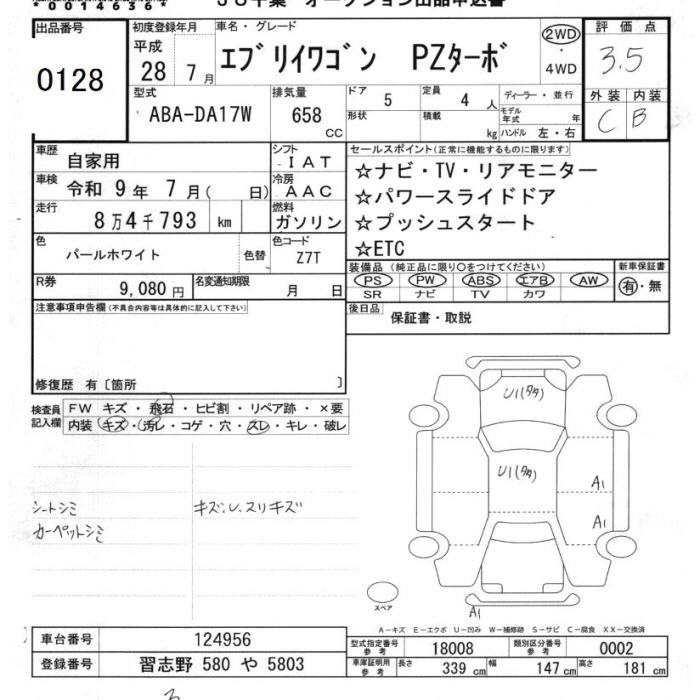 0014636
JU千葉 オークション出品申込書
出品番号 初度登録年月 車名・グレード 評価点
0128 平成 28年 7月 エブリイワゴン PZターボ 2WD ・ 4WD 3.5
型式 ABA-DA17W 排気量 658 CC ドア 5 定員 4 人 ディーラー・並行 外装 内装
形状 積載 kg モデル年式 年 ハンドル 左・右 C B
車歴 自家用 シフト IAT セールスポイント(正常に機能するものに限ります)
車検 令和 9年 7月( 日) 冷房 AAC ☆ナビ・TV・リアモニター
☆パワースライドドア
走行 8万4千793 km 燃料 ガソリン ☆プッシュスタート
☆ETC
色 パールホワイト 色替 色コード Z7T
装備品 (純正品に限り○をつけてください) 新車保証書
PS PW ABS エアB AW 有・無
SR ナビ TV カワ
R券 9,080円 名変通知期限 月 日
注意事項申告欄(不具合内容等は具体的に記入して下さい) 後日品 保証書・取説
修復歴 有〔箇所 〕
検査員 記入欄 FW キズ・飛石・ヒビ割・リペア跡・×要
内装 キズ・汚レ・コゲ・穴・スレ・キレ・破レ
U1(タタ)
U1(タタ)
A1
A1
シートシミ キズ.U.スリキズ
カーペットシミ
スペア
A1
A-キズ E-エクボ U-凹み W-補修跡 S-サビ C-腐食 XX-交換済
車台番号 124956 型式指定番号 参考 18008 類別区分番号 参考 0002
登録番号 習志野 580 や 5803 車庫証明用 参考 長さ 339 cm 幅 147 cm 高さ 181 cm